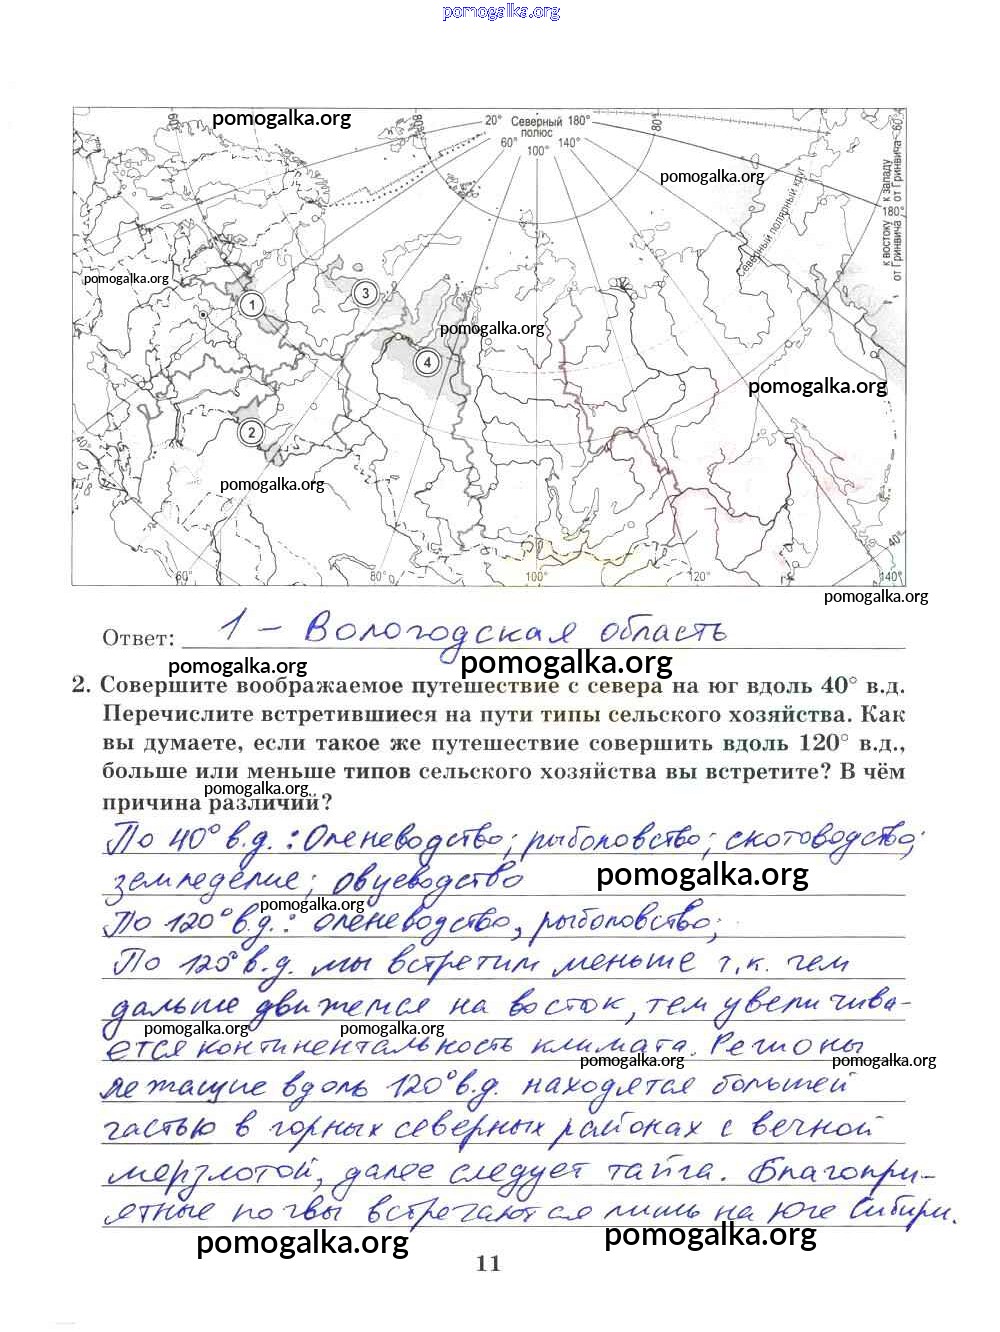 pomogalka.org
60°
pomogalka.org
80°
20° Северный 180°
полюс
60° 100° 140°
80°
pomogalka.org
Северный полярный круг
к востоку к западу
от Гринвича от Гринвича
60°
180°
pomogalka.org
1
3
pomogalka.org
4
pomogalka.org
2
40°
pomogalka.org
40°
60° 80° 100° 120° 140°
pomogalka.org
Ответ: 1 – Вологодская область
pomogalka.org pomogalka.org
2. Совершите воображаемое путешествие с севера на юг вдоль 40° в.д.
Перечислите встретившиеся на пути типы сельского хозяйства. Как
вы думаете, если такое же путешествие совершить вдоль 120° в.д.,
больше или меньше типов сельского хозяйства вы встретите? В чём
pomogalka.org
причина различий?
По 40° в.д.: Оленеводство; рыболовство; скотоводство;
земледелие; овцеводство
pomogalka.org
pomogalka.org
По 120° в.д.: оленеводство, рыболовство;
По 120° в.д. мы встретим меньше т.к. чем
дальше движемся на восток, тем увеличива-
pomogalka.org pomogalka.org
ется континентальность климата. Регионы
pomogalka.org pomogalka.org
лежащие вдоль 120° в.д. находятся большей
частью в горных северных районах с вечной
мерзлотой, далее следует тайга. Благопри-
ятные почвы встречаются лишь на юге Сибири.
pomogalka.org pomogalka.org
11